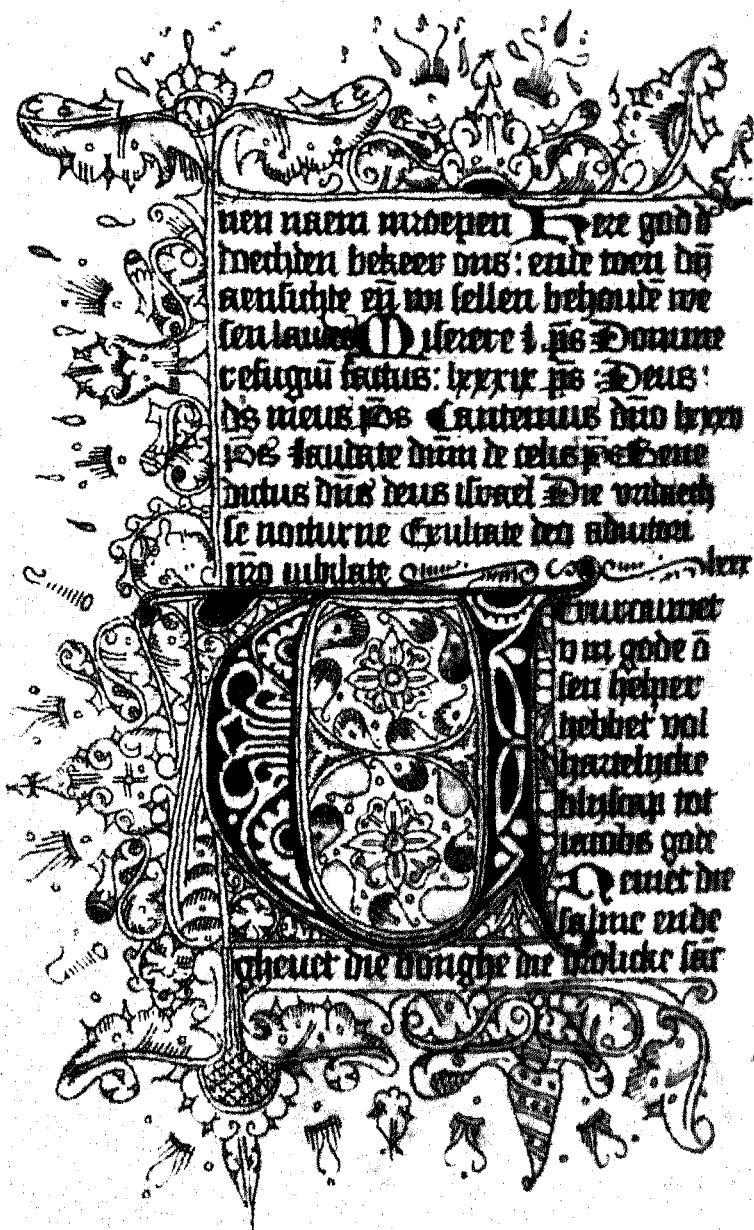 nen naem anroepen Here god d
mechten bekeer ons: ende toen dij
aensichte eñ wi sellen behoudē we
sen laudes Miserere i ps̄ Domine
refugiū factus: lxxxix ps̄ Deus
ds meus ps̄ Cantemus dño
ps̄ laudate dñm de celis ps̄ Bene
dictus dñs deus israel Die
se nocturne Exultate deo adiutori
nr̄o iubilate lxxx
Vervraumet
v in gode ō
sen helper
hebbet vol
hartelijcke
bliscap tot
iacobs gode
Nemet die
salme ende
gheuet die songhe die vrolicke